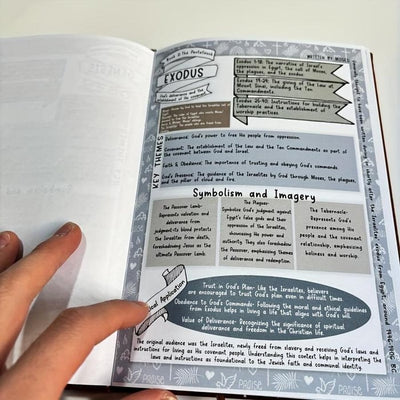 Book 2: The Pentateuch
EXODUS
God's deliverance and the
establishment of his covenant.
WRITTEN BY: MOSES
Exodus 1-18: The narrative of Israel's
oppression in Egypt, the call of Moses,
the plagues, and the exodus.
Exodus 19-24: The giving of the law at
Mount Sinai, including the Ten
Commandments.
Exodus 25-40: Instructions for building
the Tabernacle and the establishment of
worship practices.
KEY THEMES
Deliverance: God's power to free His people from oppression.
Covenant: The establishment of the Law and the Ten Commandments as part of
the covenant between God and Israel.
Faith & Obedience: The importance of trusting and obeying God's commands.
God's Presence: The guidance of the Israelites by God through Moses, the plagues,
and the pillar of cloud and fire.
Symbolism and Imagery
The Passover Lamb:
Represents salvation and
deliverance from
judgment-its blood protects
the Israelites from death,
foreshadowing Jesus as the
ultimate Passover Lamb.
The Plagues:
Symbolize God's judgment against
Egypt's false gods and the
oppression of the Israelites,
showcasing His power and
authority. They also foreshadow
the Passover, emphasizing themes
of deliverance and redemption.
The Tabernacle:
Represents God's
presence among His
people and the covenant
relationship, emphasizing
holiness and worship.
Application
Trust in God's Plan: Like the Israelites, believers
are encouraged to trust God's plan even in difficult times
Obedience to God's Commands: Following the moral and ethical guidelines
from Exodus helps in living a life that aligns with God's will.
Value of Deliverance: Recognizing the significance of spiritual
deliverance and freedom in the Christian life.
The original audience was the Israelites, newly freed from slavery and receiving God's laws and
instructions for living as His covenant people. Understanding this context helps in interpreting the
laws and instructions as foundational to the Jewish faith and communal identity.
PRAISE
PRAISE
PRAISE